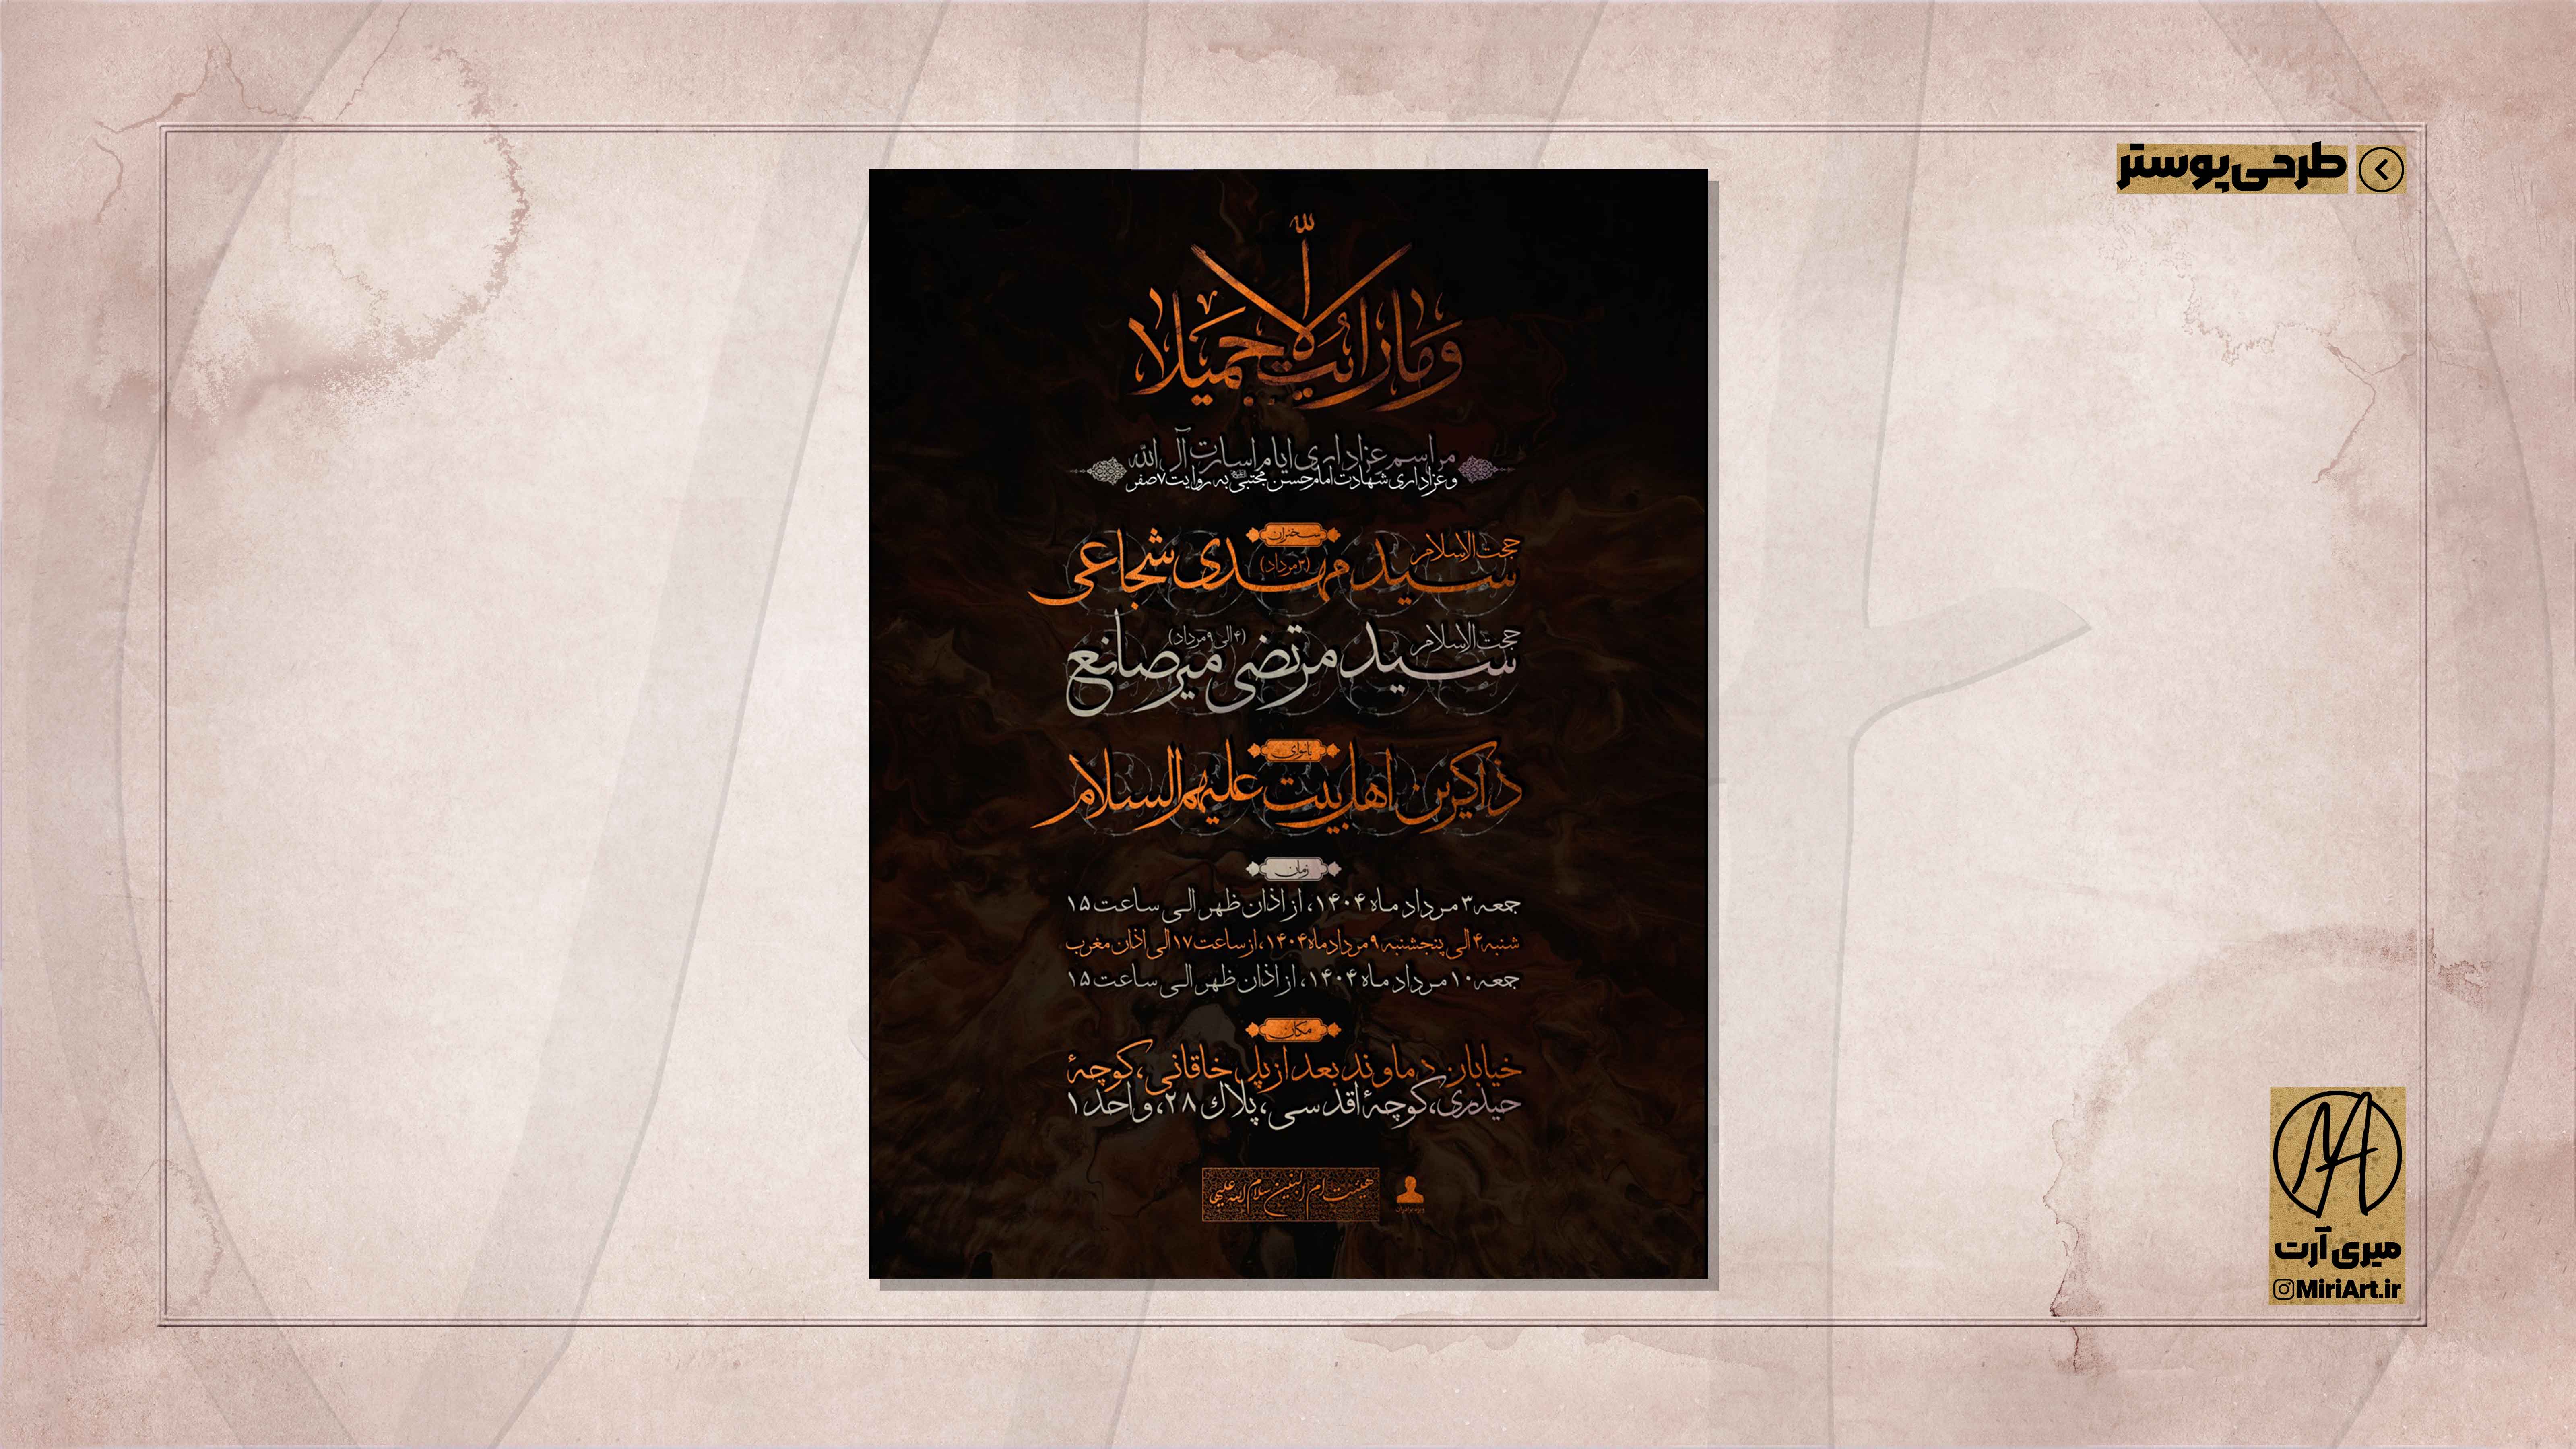 طرحی پوستر
الله
وما رایت الا جمیلا
مراسم عزاداری ایام اسارت آل الله
و عزاداری شهادت امام حسن مجتبی به روایت ۷ صفر
سخنران
حجت الاسلام
سید مهدی شجاعی
(۳ مرداد)
حجت الاسلام
سید مرتضی میرصانع
(۴ الی ۹ مرداد)
بانوای
ذاکرین اهل بیت علیهم السلام
زمان
جمعه ۳ مرداد ماه ۱۴۰۴، از اذان ظهر الی ساعت ۱۵
شنبه ۴ الی پنجشنبه ۹ مرداد ماه ۱۴۰۴، از ساعت ۱۷ الی اذان مغرب
جمعه ۱۰ مرداد ماه ۱۴۰۴، از اذان ظهر الی ساعت ۱۵
مکان
خیابان دماوند بعد از پل خاقانی، کوچهٔ
حیدری، کوچهٔ اقدسی، پلاک ۲۸، واحد ۱
هیئت ام البنین سلام الله علیها
MA
میری آرت
MiriArt.ir